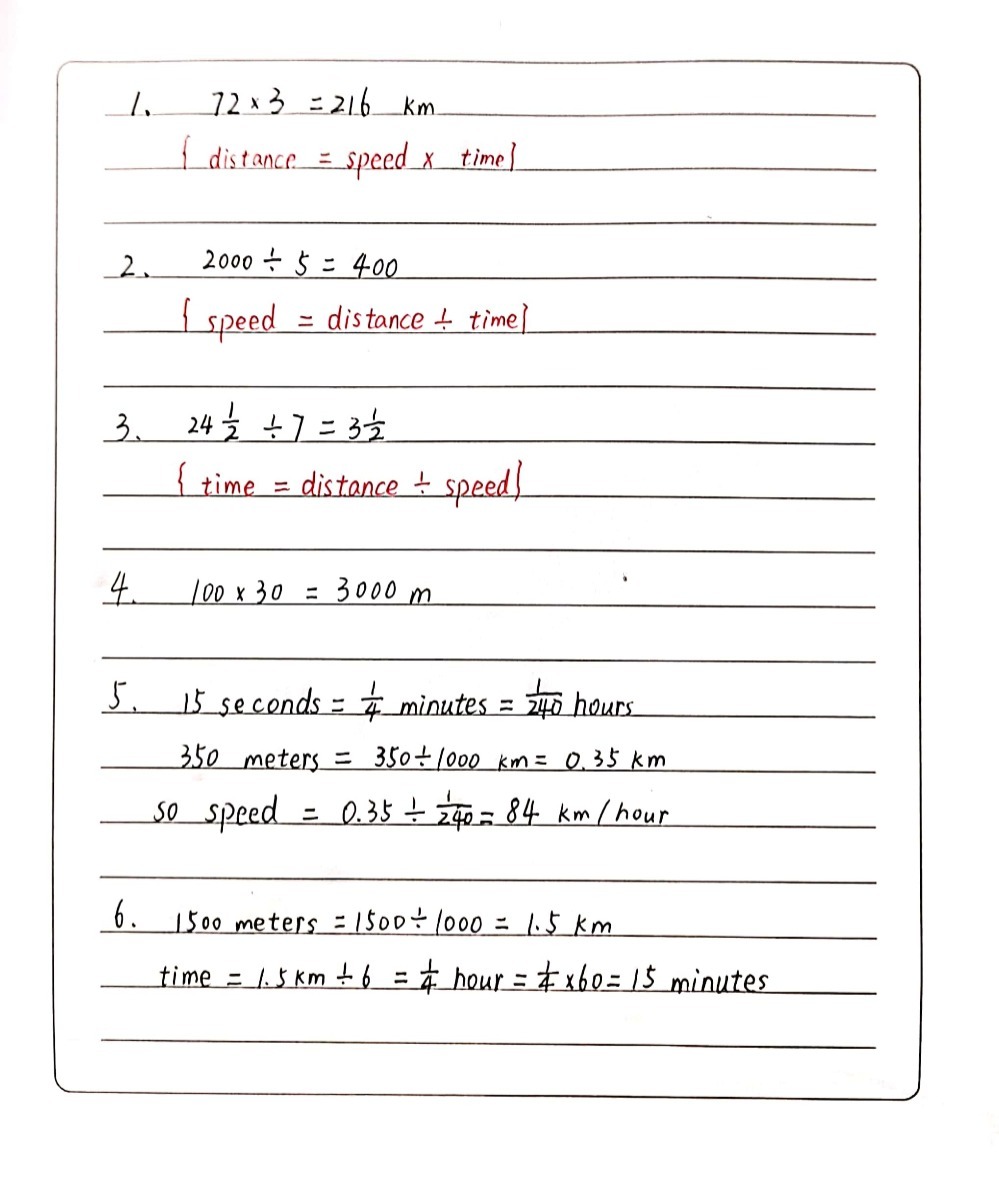 1. 72 × 3 = 216 km
{ distance = speed × time }
2. 2000 ÷ 5 = 400
{ speed = distance ÷ time }
3. 24 1/2 ÷ 7 = 3 1/2
{ time = distance ÷ speed }
4. 100 × 30 = 3000 m
5. 15 seconds = 1/4 minutes = 1/240 hours
350 meters = 350 ÷ 1000 km = 0.35 km
so speed = 0.35 ÷ 1/240 = 84 km / hour
6. 1500 meters = 1500 ÷ 1000 = 1.5 km
time = 1.5 km ÷ 6 = 1/4 hour = 1/4 × 60 = 15 minutes